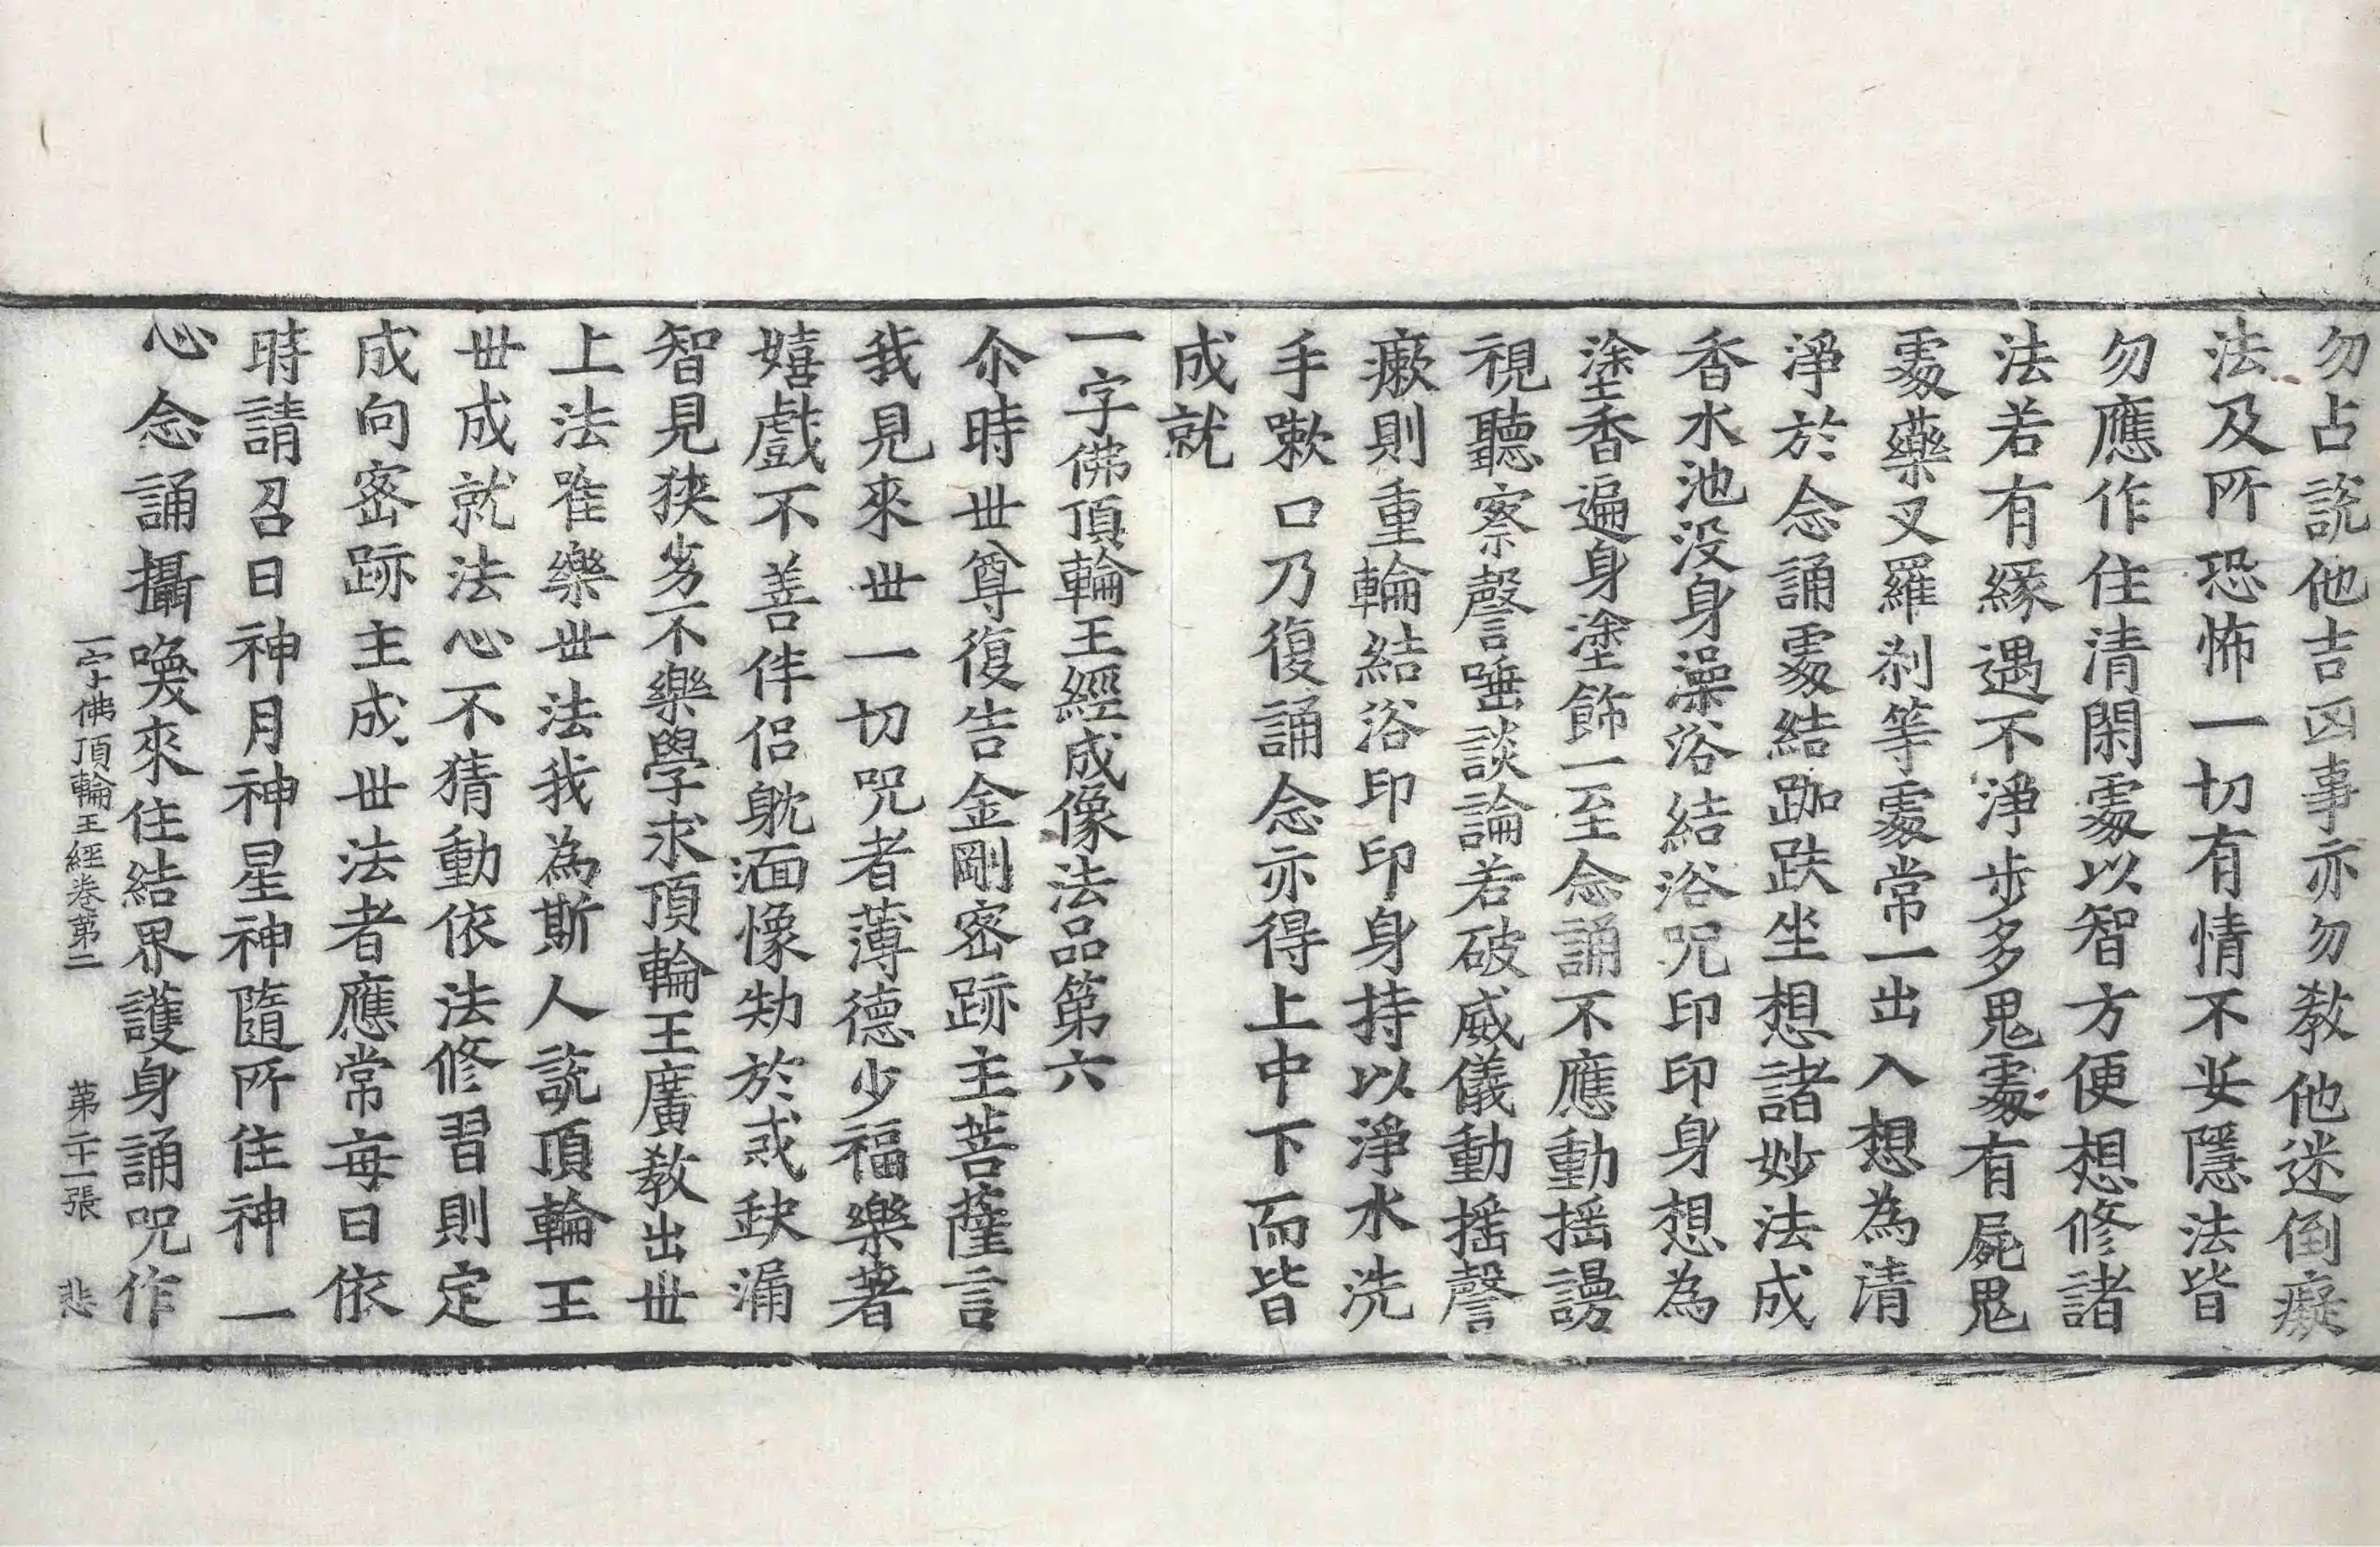 勿占說他吉凶事亦勿教他迷倒癡
法及所恐怖一切有情不妄隱法皆
勿應作住清閑處以智方便想修諸
法若有緣遇不淨步多鬼處有屍鬼
處藥叉羅刹等處常一出入想為清
淨於念誦處結跏趺坐想諸妙法成
香水池没身澡浴結浴呪印印身想為
塗香遍身塗飾一至念誦不應動揺謾
視聽察謦唾談論若破威儀動揺謦
瘶則重輪結浴印印身持以淨水洗
手嗽口乃復誦念亦得上中下而皆
成就
一字佛頂輪王經成像法品第六
尒時世尊復告金剛密跡主菩薩言
我見來世一切呪者薄德少福樂著
嬉戲不善伴侣躭湎懈勑於戒缺漏
智見狹劣不樂學求頂輪王廣教出世
上法唯樂世法我為斯人說頂輪王
世成就法心不猜動依法修習則定
成向密跡主成世法者應常每日依
時請召日神月神星神隨所住神一
心念誦攝喚來住結界護身誦呪作
一字佛頂輪王經卷第二 第二十一張 悲